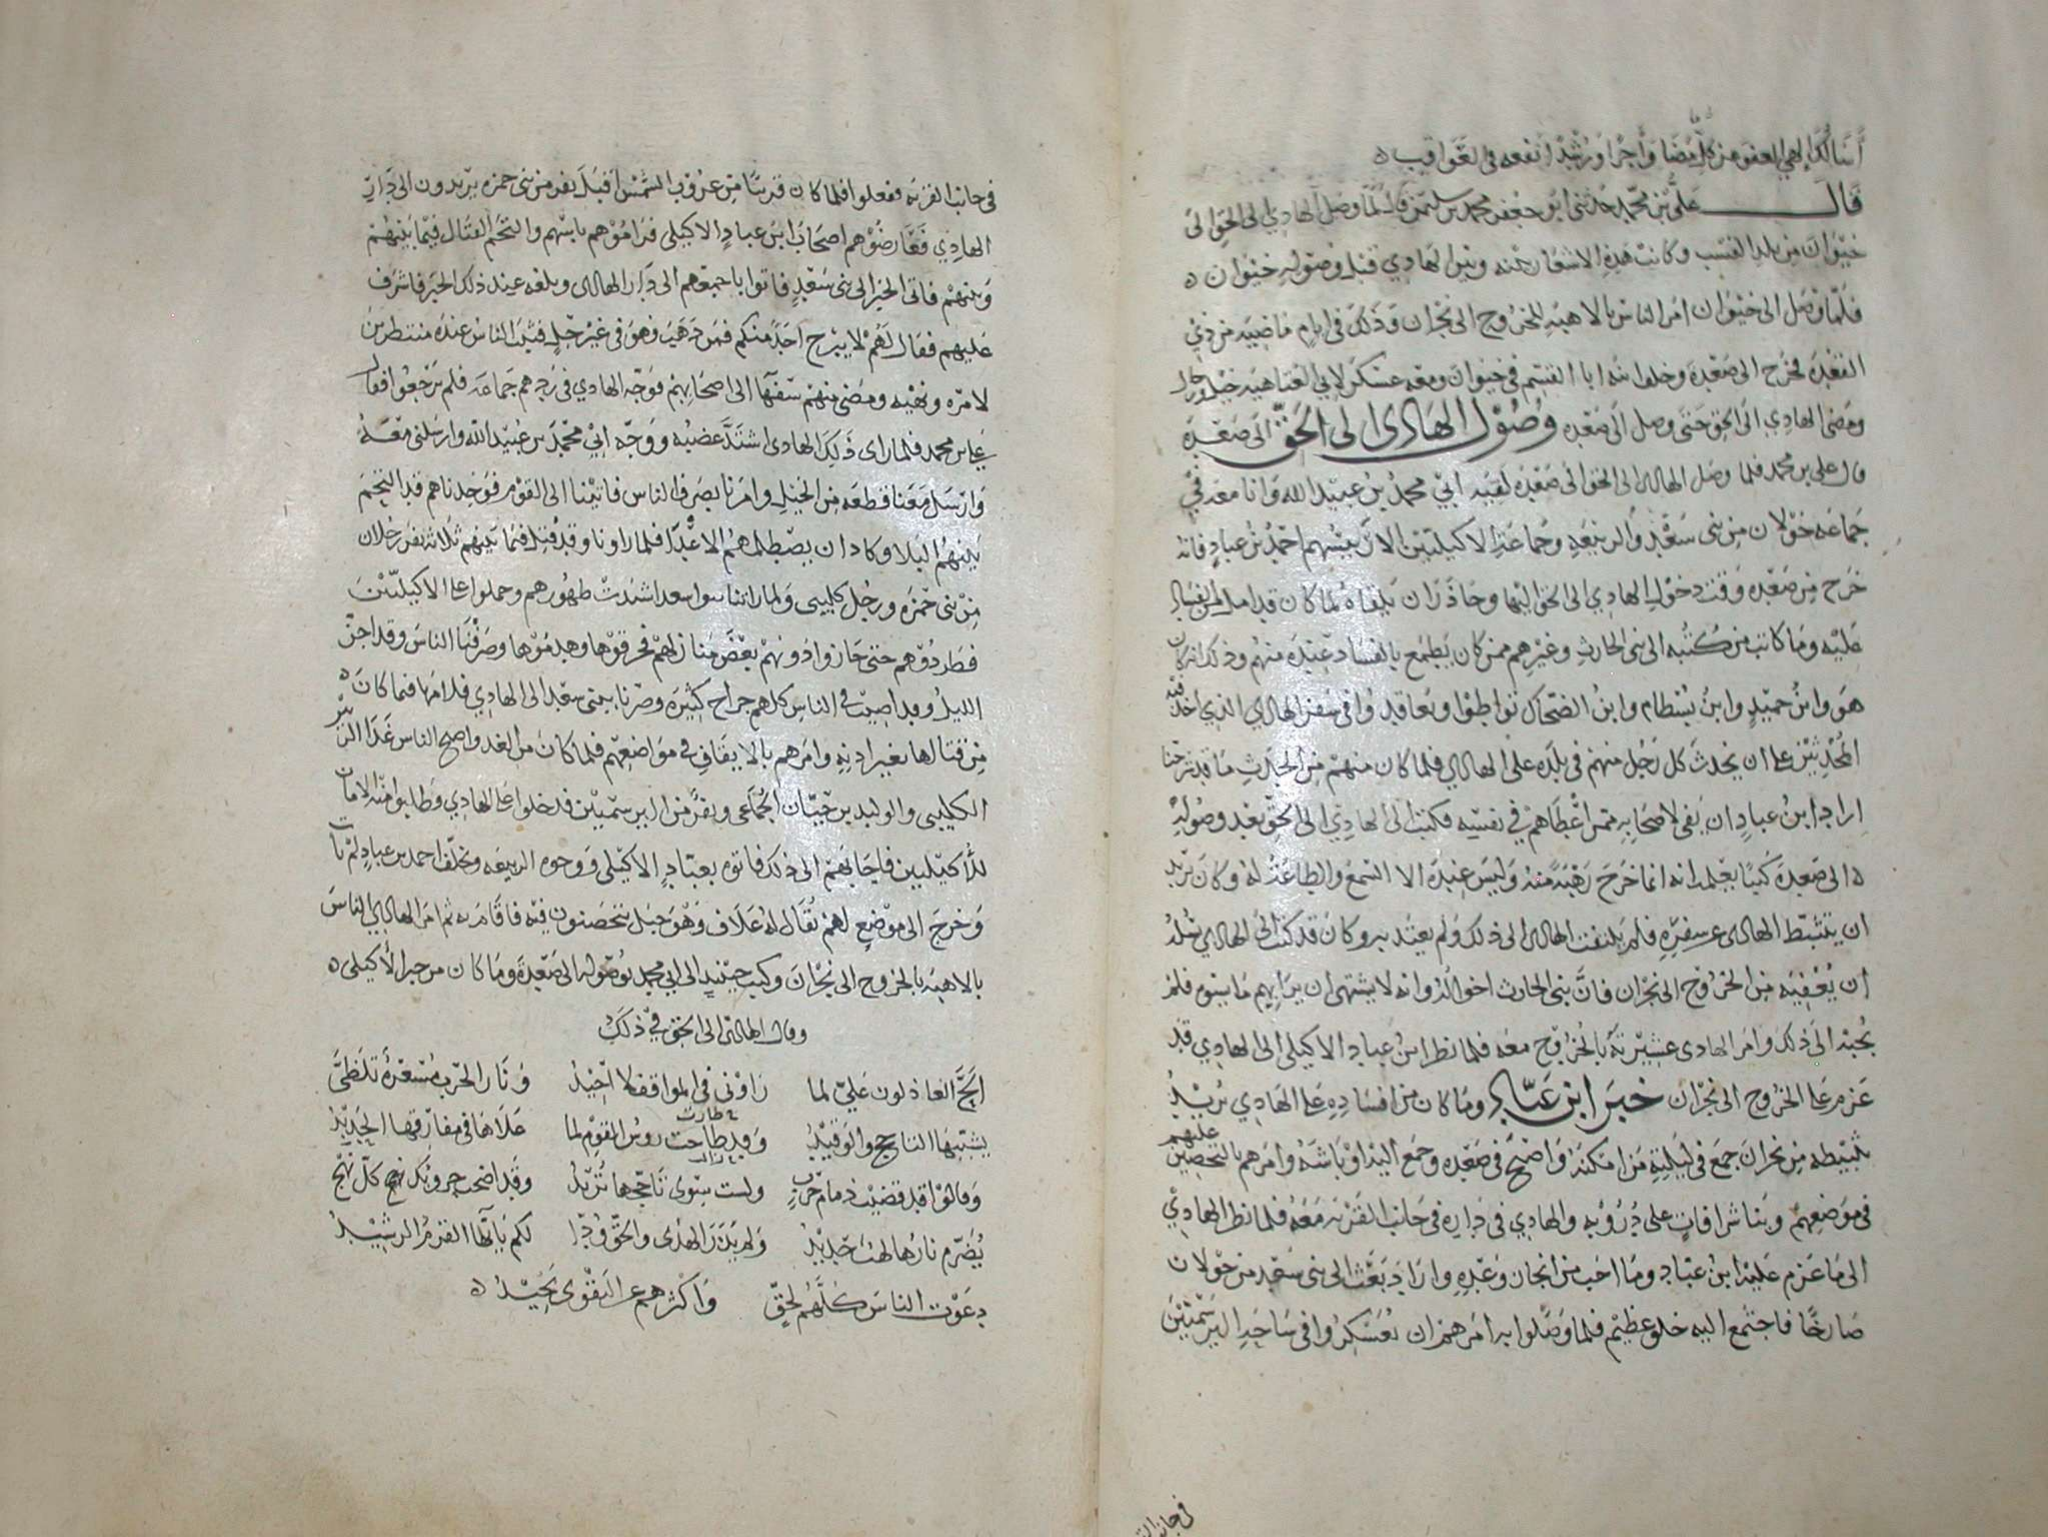 أسألك إلهي العفو من كل مضا وأجرا ورشدا أنفعه في العواقب ه
قال علي بن محمد حدثني ابو جعفر محمد بن سليمن قال لما وصل الهادي الى الحق الى
خيوان من بلد وكانت هذه الاشعار بينه وبين الهادي قبل وصوله خيوان ه
فلما وصل الى خيوان امر الناس بالاهبة للخروج الى نجران وذلك في ايام ماضيه من ذي
القعدة فخرج الى صعدة وخلف ابنه ابا القسم في خيوان ومعه عسكر لابي العتاهيه خيل ورجال
ومضى الهادي الى الحق حتى وصل الى صعده وصول الهادي الى الحق الى صعدة
قال علي بن محمد فلما وصل الهادي الى الحق الى صعدة لقيه ابي محمد بن عبيد الله وانا معه في
جماعه خولان من بني سعد والربيعه وجماعة الاكيليين الا رئيسهم احمد بن عباد فانه
خرج من صعده وقت دخول الهادي الى الحق اليها وحاذر ان يلقاه لما كان قد من الفساد
عليه وما كاتب من كتبه الى بني الحارث وغيرهم ممن كان يطمع بالفساد عنده منهم وذلك انه كان
هو وابن حميد وابن بسطام وابن الضحاك تواطوا وتعاقدوا في سفر الهادي الذي اخذ فيه
المحدثين على ان يحدث كل رجل منهم في بلده على الهادي فلما كان منهم من الحدث ما قد شرحنا
اراد ابن عباد ان يفي لاصحابه بما اعطاهم في نفسه فكتب الى الهادي الى الحق بعد وصوله
ه الى صعدة كتابا يعلمه انه انما خرج رهبة منه وليس عنده الا السمع والطاعة له وكان يريد
ان يتثبط الهادي عن سفره فلم يلتفت الهادي الى ذلك ولم يعتد به وكان قد كتب الى الهادي يسله
ان يعفيه من الخروج الى نجران فان بني الحارث اخواله وانه لا يشتهي ان يراهم ما بينهم فلم
يجبه الى ذلك وامر الهادي عشيرته بالخروج معه فلما نظر ابن عباد الاكيلي الى الهادي قد
عزم على الخروج الى نجران خبر ابن عباد وما كان من افساده على الهادي يريد
تثبيطه من نجران جمع في ليلته من امكنه واصبح في صعده وجمع اليه اوباشه وامرهم بالتحصين عليهم
في موضعهم وبنا شرافات على دروبه والهادي في داره في جانب القريه معه فلما نظر الهادي
الى ما عزم عليه ابن عباد وما احب من انجاز وعده واراد بعث الى بني سعد من خولان
صارخا فاجتمع اليه خلق عظيم فلما وصلوا به امرهم ان يعسكروا في ساحة البرسميين
في جانب
في جانب القريه ففعلوا فلما كان قريبا من غروب الشمس اقبل نفر من بني حمزه يريدون الى دار
الهادي فعارضوهم اصحاب ابن عباد الاكيلي فراموهم باسهم والتحم القتال فيما بينهم
وبينهم فاتى الخبر الى بني سعد فاتوا باجمعهم الى دار الهادي وبلغه عند ذلك الخبر فاشرف
عليهم فقال لهم لا يبرح احد منكم فمن ذهب فهو في غير حل فثبت الناس عنده منتظرين
لامره ونهيه ومضى منهم سفها الى اصحابهم فوجه الهادي في ردهم جماعه فلم يرجعوا فقال
علي بن محمد فلما راى ذلك الهادي اشتد غضبه ووجه ابي محمد بن عبيد الله وارسلني معه
وارسل معنا قطعه من الخيل وامرنا بصرف الناس فاتينا الى القوم فوجدناهم قد التحم
بينهم البلا وكاد ان يصطلمهم الاعداء فلما راونا وقد قتل فيما بينهم ثلاثة نفر رجلان
من بني حمزه ورجل كليبي ولما راينا بنوا سعد اشتدت ظهورهم وحملوا على الاكيليين
فطردوهم حتى حازوا دونهم بعض منازلهم فحرقوها وهدموها وصرفنا الناس وقد اجن
الليل وقد اصيب في الناس كلهم جراح كثيره وصرنا ببني سعد الى الهادي فلامها فيما كان ه
من قتالها بغير اذنه وامرهم بالايقاف في مواضعهم فلما كان من الغد واصبح الناس غدا
الكليبي والوليد بن حيان الجماعي ونفر من البرسميين فدخلوا على الهادي وطلبوا منه الامان
للاكيليين فاجابهم الى ذلك فاتوه بعباد الاكيلي ووجوه الربيعه وتخلف احمد بن عباد لم يات
وخرج الى موضع لهم يقال له علاف وهو جبل يتحصنون فيه فاقام به ثم امر الهادي الناس
بالاهبه بالخروج الى نجران وكتب حينئذ الى ابي محمد بوصوله الى صعدة وما كان من خبر الاكيلي ه
وقال الهادي الى الحق في ذلك
الح العاذلون علي لما راوني في المواقف لا احيد ونار الحرب مسعرة تلظى
يشبهها التاجج والوقيد وقد طاحت روس القوم لما علاها في مفارقها الحديد
طارت
وقالوا قد قضيت ذمام حرب ولست سوى تاججها تريد وقد اضحت حروبك نهج كل نهج
يضرم نارها لهب حديد ولم يذر الهدى والحق ودا لكم يا ايها القرم الرشيد
دعوت الناس كلهم لحق واكثرهم عن التقوى يحيد ه